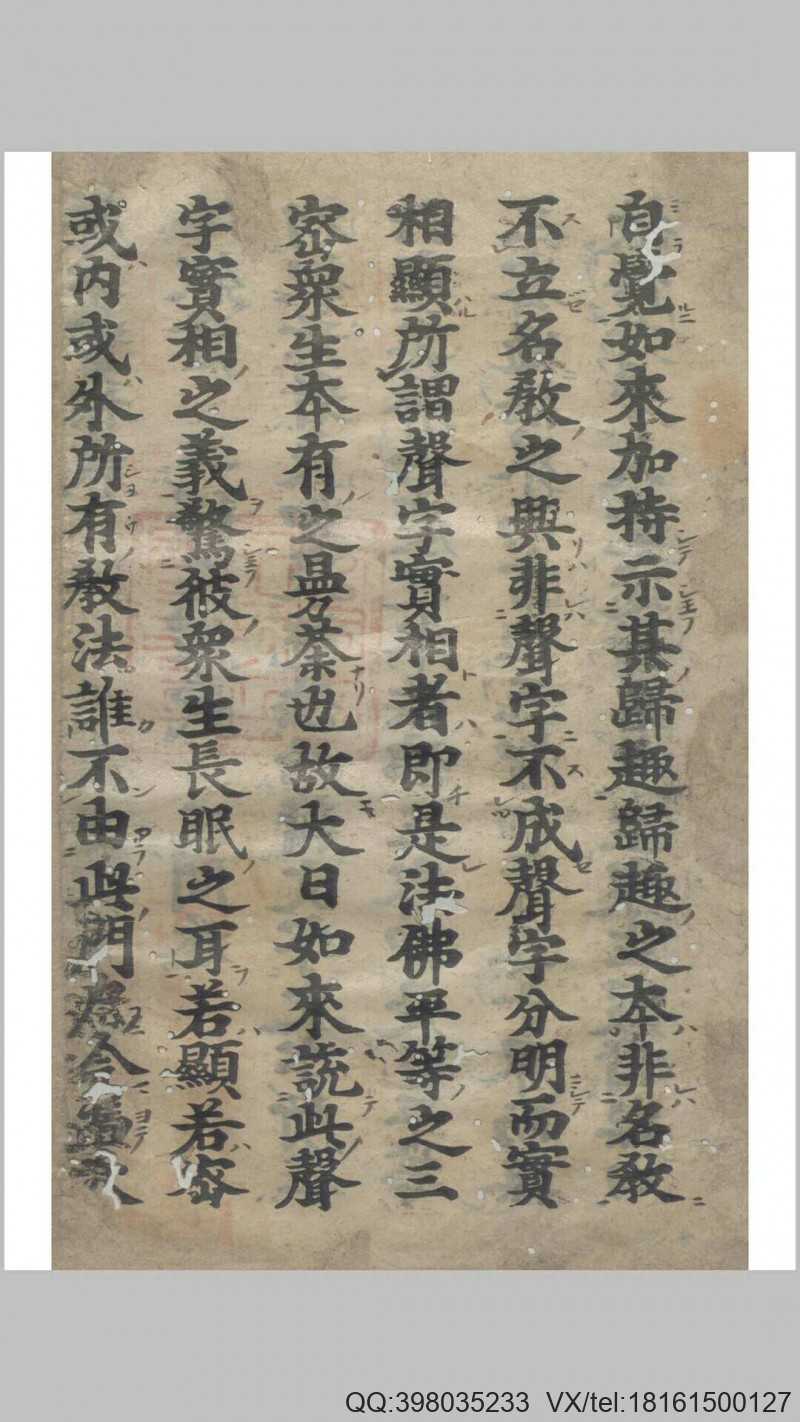 自覺如來加持示其歸趣歸趣之本非名教
不立名教之興非聲字不成聲字分明而實
相顯所謂聲字實相者即是法佛平等之三
密衆生本有之曼荼也故大日如來說此聲
字實相之義驚彼衆生長眠之耳若顯若密
或内或外所有教法誰不由此門
QQ:398035233 VX/tel:18161500127